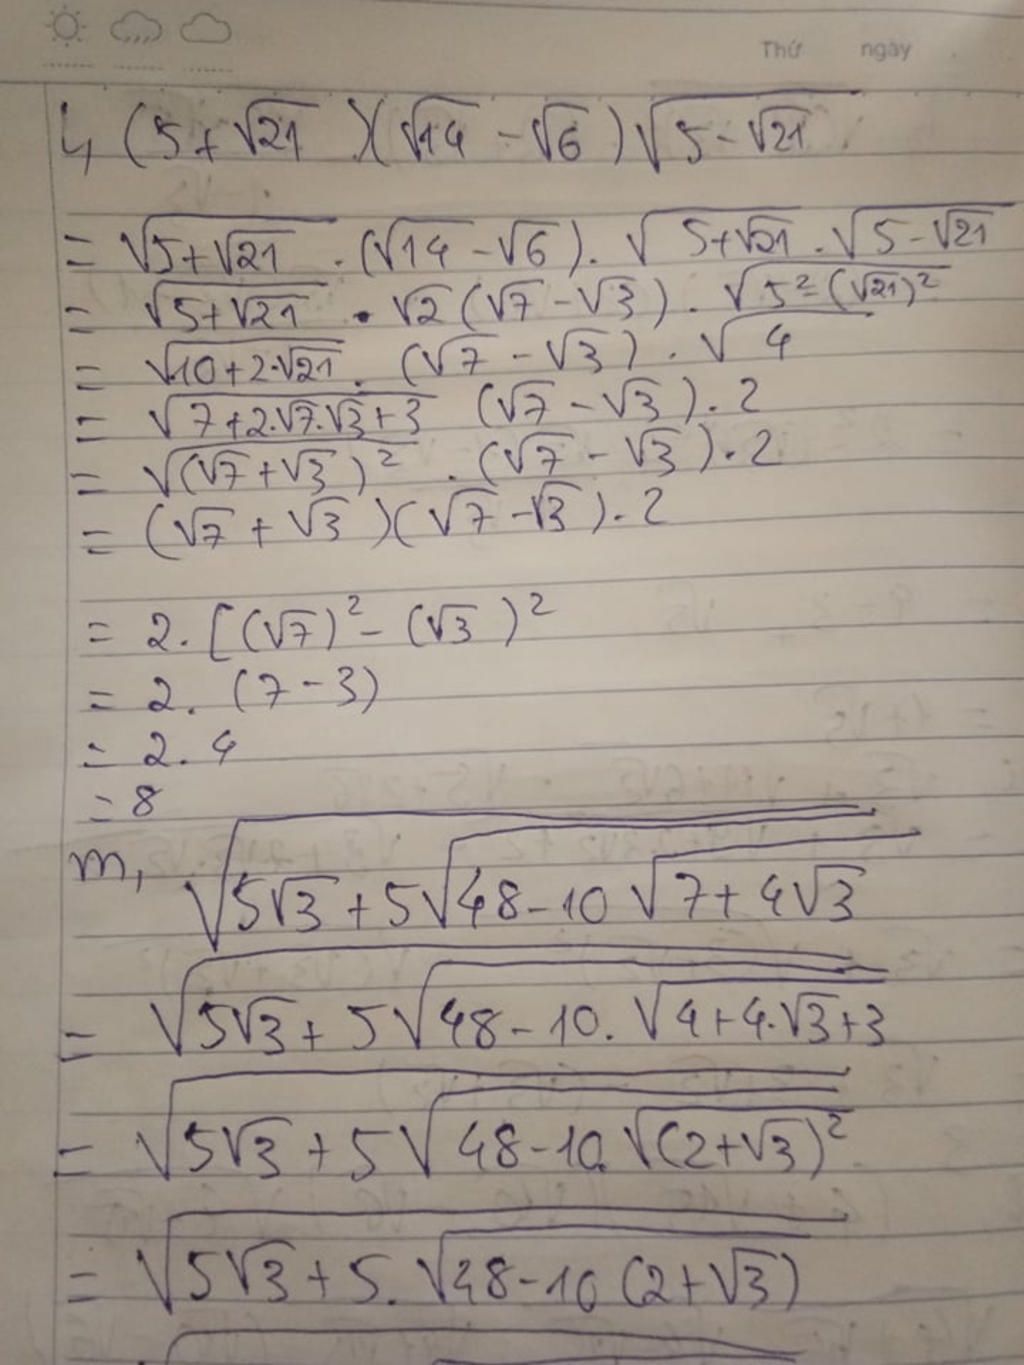 Thứ ngày
L, (5+√21)(√14 - √6)√(5-√21)
= √(5+√21) . (√14 - √6). √(5+√21) . √(5-√21)
= √(5+√21) . √2 (√7 - √3) . √(5² - (√21)²)
= √(10+2.√21) . (√7 - √3) . √4
= √(7+2.√7.√3+3) (√7 - √3) . 2
= √((√7+√3)²) . (√7 - √3) . 2
= (√7 + √3)(√7 - √3) . 2
= 2. [(√7)² - (√3)²
= 2. (7 - 3)
= 2. 4
= 8
m, √(5√3 + 5√(48 - 10√(7+4√3)))
= √(5√3 + 5√(48 - 10. √(4+4.√3+3)))
= √(5√3 + 5√(48 - 10. √((2+√3)²)))
= √(5√3 + 5. √(48 - 10 (2+√3)))